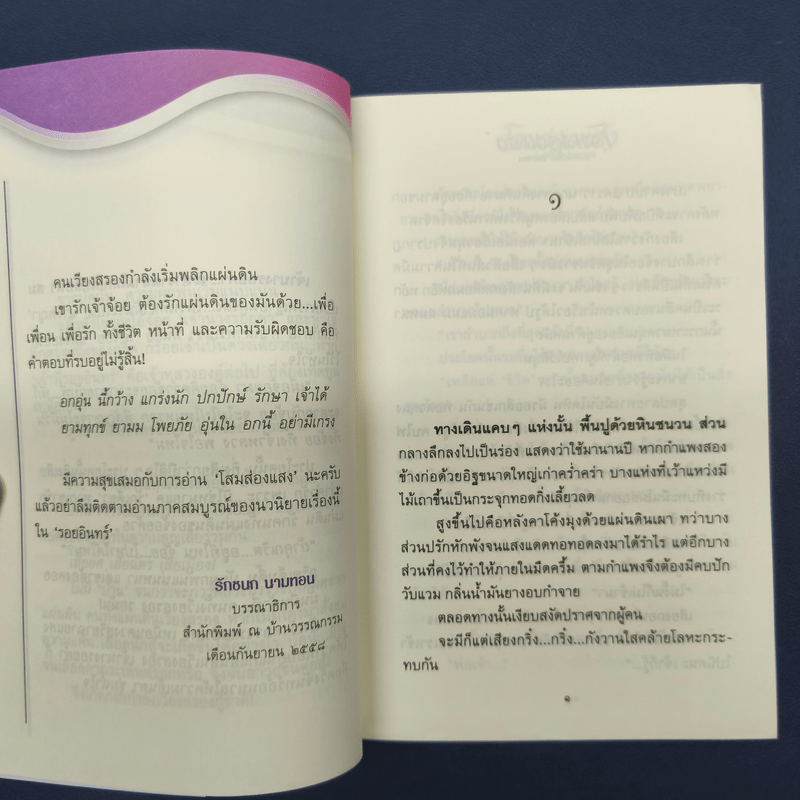 คนเวียงสรองกำลังเริ่มพลิกแผ่นดิน
เขารักเจ้าจ้อย ต้องรักแผ่นดินของมันด้วย...เพื่อ
เพื่อน เพื่อรัก ทั้งชีวิต หน้าที่ และความรับผิดชอบ คือ
คำตอบที่รบอยู่ไม่รู้สิ้น!
อกอุ่น นี้กว้าง แกร่งนัก ปกปักษ์ รักษา เจ้าได้
ยามทุกข์ ยามม โพยภัย อุ่นใน อกนี้ อย่ามีเกรง
มีความสุขเสมอกับการอ่าน ‘โสมส่องแสง’ นะครับ
แล้วอย่าลืมติดตามอ่านภาคสมบูรณ์ของนวนิยายเรื่องนี้
ใน ‘รอยอินทร์’
รักชนก นามทอน
บรรณาธิการ
สำนักพิมพ์ ณ บ้านวรรณกรรม
เดือนกันยายน ๒๕๕๘
๑
ทางเดินแคบๆ แห่งนั้น พื้นปูด้วยหินชนวน ส่วน
กลางลึกลงไปเป็นร่อง แสดงว่าใช้มานานปี หากกำแพงสอง
ข้างก่อด้วยอิฐขนาดใหญ่เก่าคร่ำคร่า บางแห่งที่เว้าแหว่งมี
ไม้เถาขึ้นเป็นกระจุกทอดกิ่งเลี้ยวลด
สูงขึ้นไปคือหลังคาโค้งมุงด้วยแผ่นดินเผา ทว่าบาง
ส่วนปรักหักพังจนแสงแดดทอทอดลงมาได้รำไร แต่อีกบาง
ส่วนที่คงไว้ทำให้ภายในมืดครึ้ม ตามกำแพงจึงต้องมีคบปัก
วับแวม กลิ่นน้ำมันยางอบกำจาย
ตลอดทางนั้นเงียบสงัดปราศจากผู้คน
จะมีก็แต่เสียงกริ่ง...กริ่ง...กังวานใสคล้ายโลหะกระ-
ทบกัน
๑